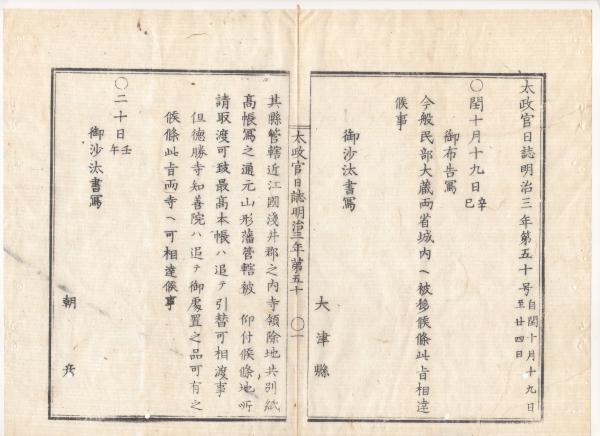 太政官日誌明治三年第五十号 自閏十月十九日
至廿四日
〇閏十月十九日 辛巳
御布告写
今般民部大蔵両省城内ヘ被移候條此旨相達
候事
御沙汰書写
大津縣
太政官日誌明治三年第五十 〇一
其縣管轄近江國淺井郡之内寺領除地共別紙
高帳写之通元山形藩管轄被 仰付候條地所
請取渡可致最高本帳ハ追テ引替可相渡事
但徳勝寺知善院ハ追テ御處置之品可有之
候條此旨両寺ヘ可相達候事
〇二十日 壬午
御沙汰書写
朝兵